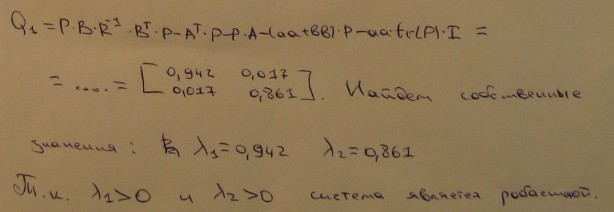 Q₁ = P·B·R⁻¹·Bᵀ·P–Aᵀ·P–P·A–(aa+BB)·P–aa·tr(P)·I =
= .... = [0,942 0,017
0,017 0,861]. Найдем собственные
значения: λ₁=0,942 λ₂=0,861
Т.к. λ₁>0 и λ₂>0 система является робастной.